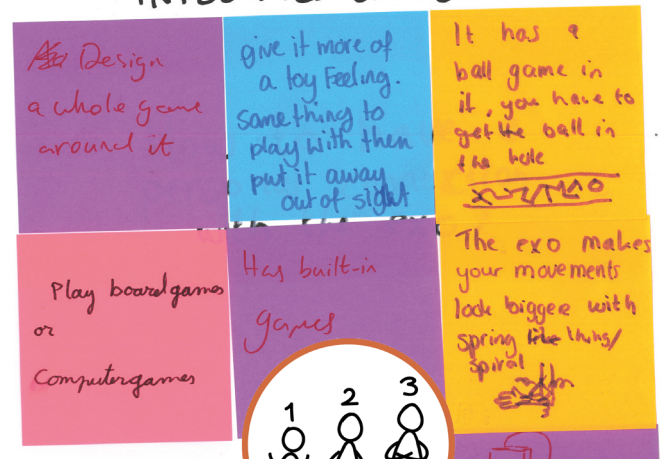 Design
a whole game
around it
give it more of
a toy feeling.
something to
play with then
put it away
out of sight
It has a
ball game in
it, you have to
get the ball in
the hole
Play boardgames
or
Computergames
Has built-in
games
The exo makes
your movements
look bigger with
spring like things/
spiral
1 2 3